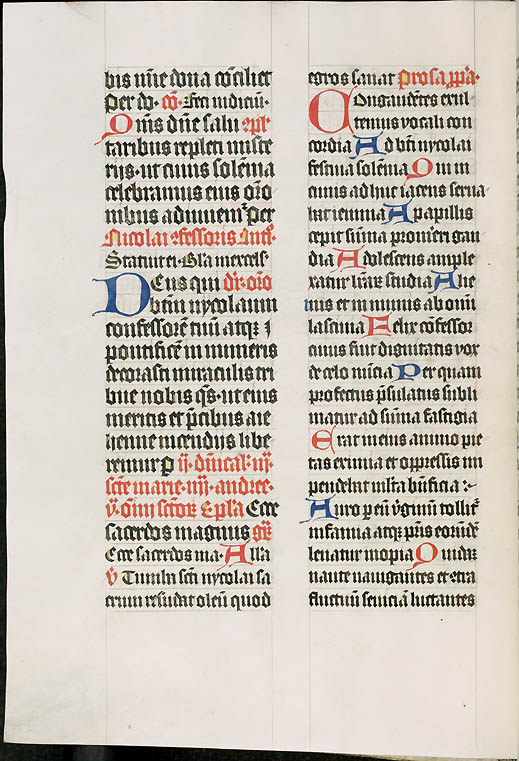 bis um̄e dona cōciliet
per do· cō· Feci iudiciū·
Qums dn̄e salu eple
taribus repleti miste
rijs· ut cuius solēnia
celebramus eius oro
nibus adiuuem̄ per
Nicolai cfessoris Antf̄
Statuit ei· Gl̄a merces
DEus qui dr̄· oro
btm̄ nycolaum
confessorē tuū atq; ⁊
pontificē in numeris
decorasti miraculis tri
bue nobis qs̄· ut eius
meritis et p̄cibus a ie
henne incendijs libe
remur p ij· dn̄icał· iij·
scte marie· iiij· andree·
v̄· om̄i sctoꝝ Epła Ecce
sacerdos magnus gr̄
Ecce sacerdos ma· Alla
v̄ Tumba scti nycolai sa
crum resudat oleū quod
egros sanat prosa pp̄a·
COngaudētes exul
temus vocali con
cordia Ad bti nycolai
festiua solēnia Qui in
cunis adhuc iacens serua
bat ieiunia A papillis
cepit sūma promeri gau
dia Adolescens ample
xatur lr̄aꝝ studia Alie
nus et in munis ab omī
lasciuia Felix cōfessor
cuius fuit dignitatis vox
de celo nūcia Per quam
prouectus p̄sulatus subli
matur ad sūma fastigia
Erat in eius animo pie
tas eximia et oppressis im
pendebat multa bn̄ficia ⁊
Auro per eū v̄ginū tollit̄
infamia atq; pr̄is eorūdē
leuatur inopia Quidā
naute nauigantes et ctra
fluctuū seuiciā luctantes